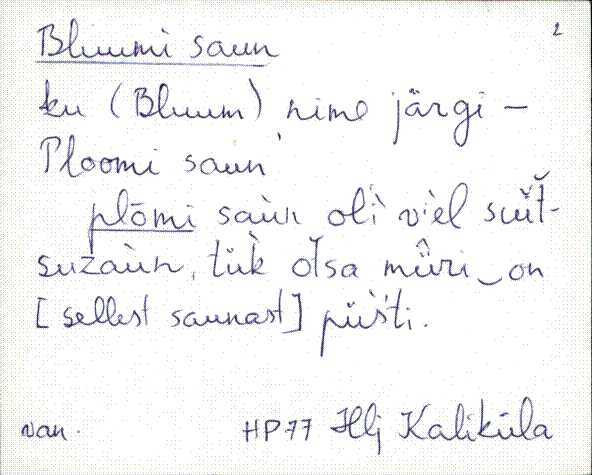 2
Bluumi saun
ku (Bluum) nime järgi –
Ploomi saun
plōmi saùn olì vièl suit̆-
suzaùn, tük̀ ot̆sa müri‿on
[sellest saunast] püs̀ti.
van. HP 77 Hlj Kaliküla